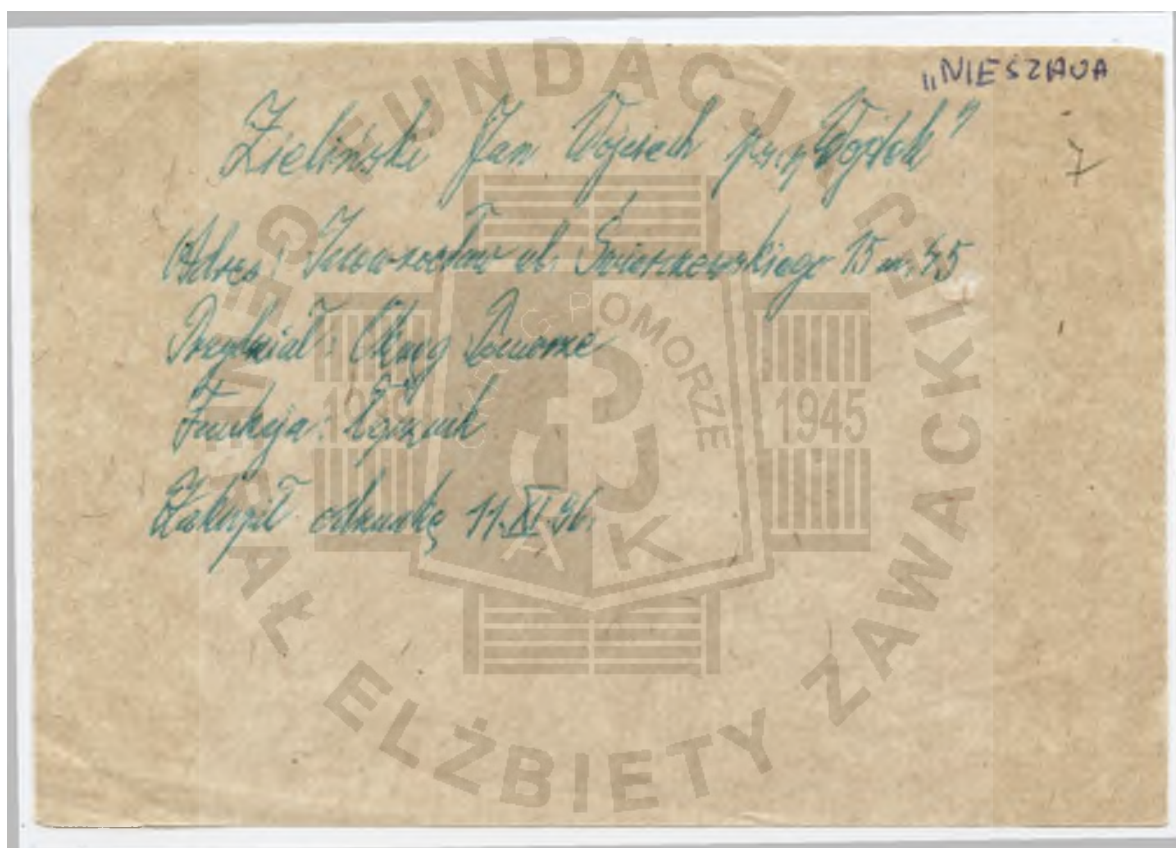 "NIESZAWA
7
Zieliński Jan Wojciech ps. "Wojtek"
Adres: Inowrocław ul. Świerczewskiego 15 m. 45
Przydział: Okręg Pomorze
Funkcja: Łącznik
Zakupił odznakę 11.XI.96.
FUNDACJA GENERAŁ ELŻBIETY ZAWACKIEJ
OKRĘG POMORZE
1939 1945
AK